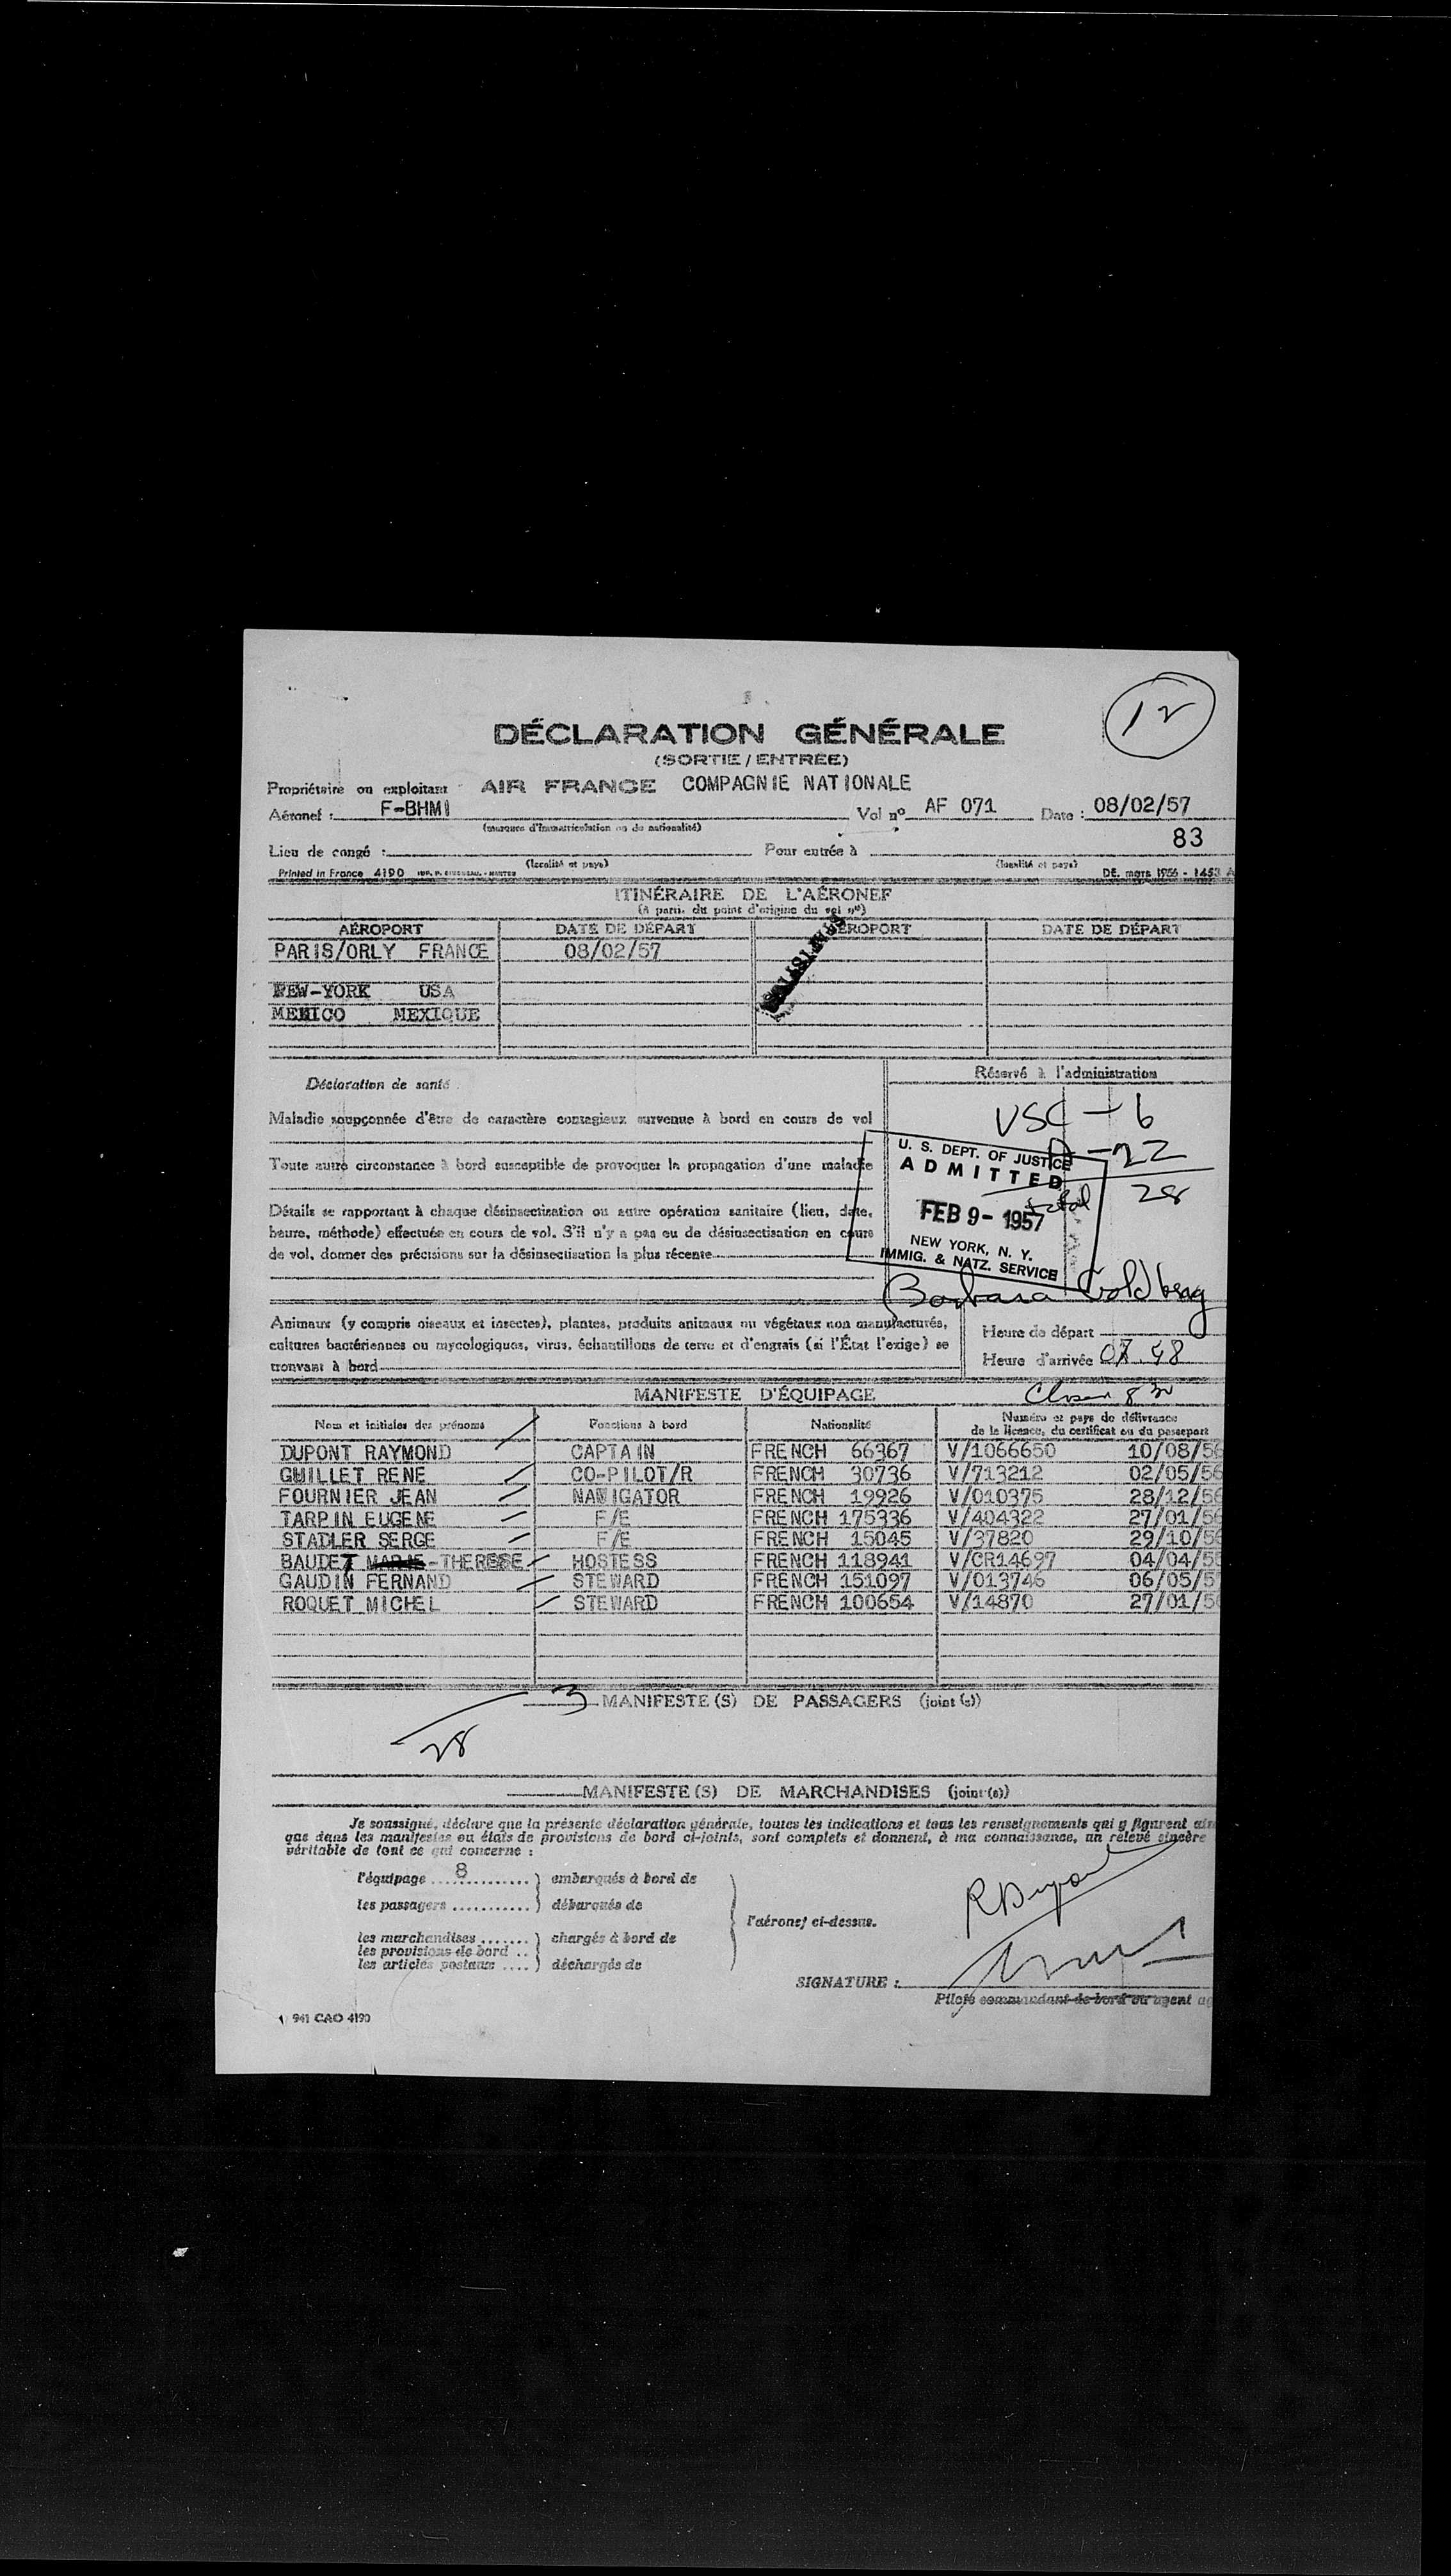 12
DÉCLARATION GÉNÉRALE
(SORTIE / ENTRÉE)
Propriétaire ou exploitant AIR FRANCE COMPAGNIE NATIONALE
Aéronef : F-BHMI Vol nº AF 071 Date : 08/02/57
(marques d'immatriculation ou de nationalité)
83
Lieu de congé : Pour entrée à
(localité et pays) (localité et pays)
Printed in France 4190 DE. mars 1956 - 1453 A
ITINÉRAIRE DE L'AÉRONEF
(A partir du point d'origine du vol nº)
AÉROPORT DATE DE DÉPART AÉROPORT DATE DE DÉPART
PARIS/ORLY FRANCE 08/02/57
NEW-YORK USA
MEXICO MEXIQUE
Déclaration de santé
Réservé à l'administration
USC - 6
Maladie soupçonnée d'être de caractère contagieux survenue à bord en cours de vol
A - 22
Toute autre circonstance à bord susceptible de provoquer la propagation d'une maladie
total 28
U. S. DEPT. OF JUSTICE
ADMITTED
FEB 9 - 1957
NEW YORK, N. Y.
IMMIG. & NATZ. SERVICE
Détails se rapportant à chaque désinsectisation ou autre opération sanitaire (lieu, date,
heure, méthode) effectuée en cours de vol. S'il n'y a pas eu de désinsectisation en cours
de vol, donner des précisions sur la désinsectisation la plus récente
Barbara Goldberg
Animaux (y compris oiseaux et insectes), plantes, produits animaux ou végétaux non manufacturés,
cultures bactériennes ou mycologiques, virus, échantillons de terre et d'engrais (si l'État l'exige) se
trouvant à bord
Heure de départ
Heure d'arrivée 07.48
MANIFESTE D'ÉQUIPAGE
Nom et initiales des prénoms Fonctions à bord Nationalité Numéro et pays de délivrance
de la licence, du certificat ou du passeport
DUPONT RAYMOND CAPTAIN FRENCH 66367 V/1066650 10/08/56
GUILLET RENE CO-PILOT/R FRENCH 30736 V/713212 02/05/56
FOURNIER JEAN NAVIGATOR FRENCH 19926 V/010375 28/12/56
TARPIN EUGENE F/E FRENCH 175336 V/404322 27/01/56
STADLER SERGE F/E FRENCH 15045 V/37820 29/10/56
BAUDET MARIE-THERESE HOSTESS FRENCH 118941 V/CR14697 04/04/5
GAUDIN FERNAND STEWARD FRENCH 151097 V/013746 06/05/5
ROQUET MICHEL STEWARD FRENCH 100654 V/14870 27/01/56
3 MANIFESTE(S) DE PASSAGERS (joint(s))
28
MANIFESTE(S) DE MARCHANDISES (joint(s))
Je soussigné, déclare que la présente déclaration générale, toutes les indications et tous les renseignements qui y figurent ain
que dans les manifestes ou états de provisions de bord ci-joints, sont complets et donnent, à ma connaissance, un relevé sincère
véritable de tout ce qui concerne :
l'équipage 8 embarqués à bord de
les passagers débarqués de
l'aéronef ci-dessus.
les marchandises chargés à bord de
les provisions de bord
les articles postaux déchargés de
RDupont
SIGNATURE :
Pilote commandant de bord ou agent ag
941 CAO 4190